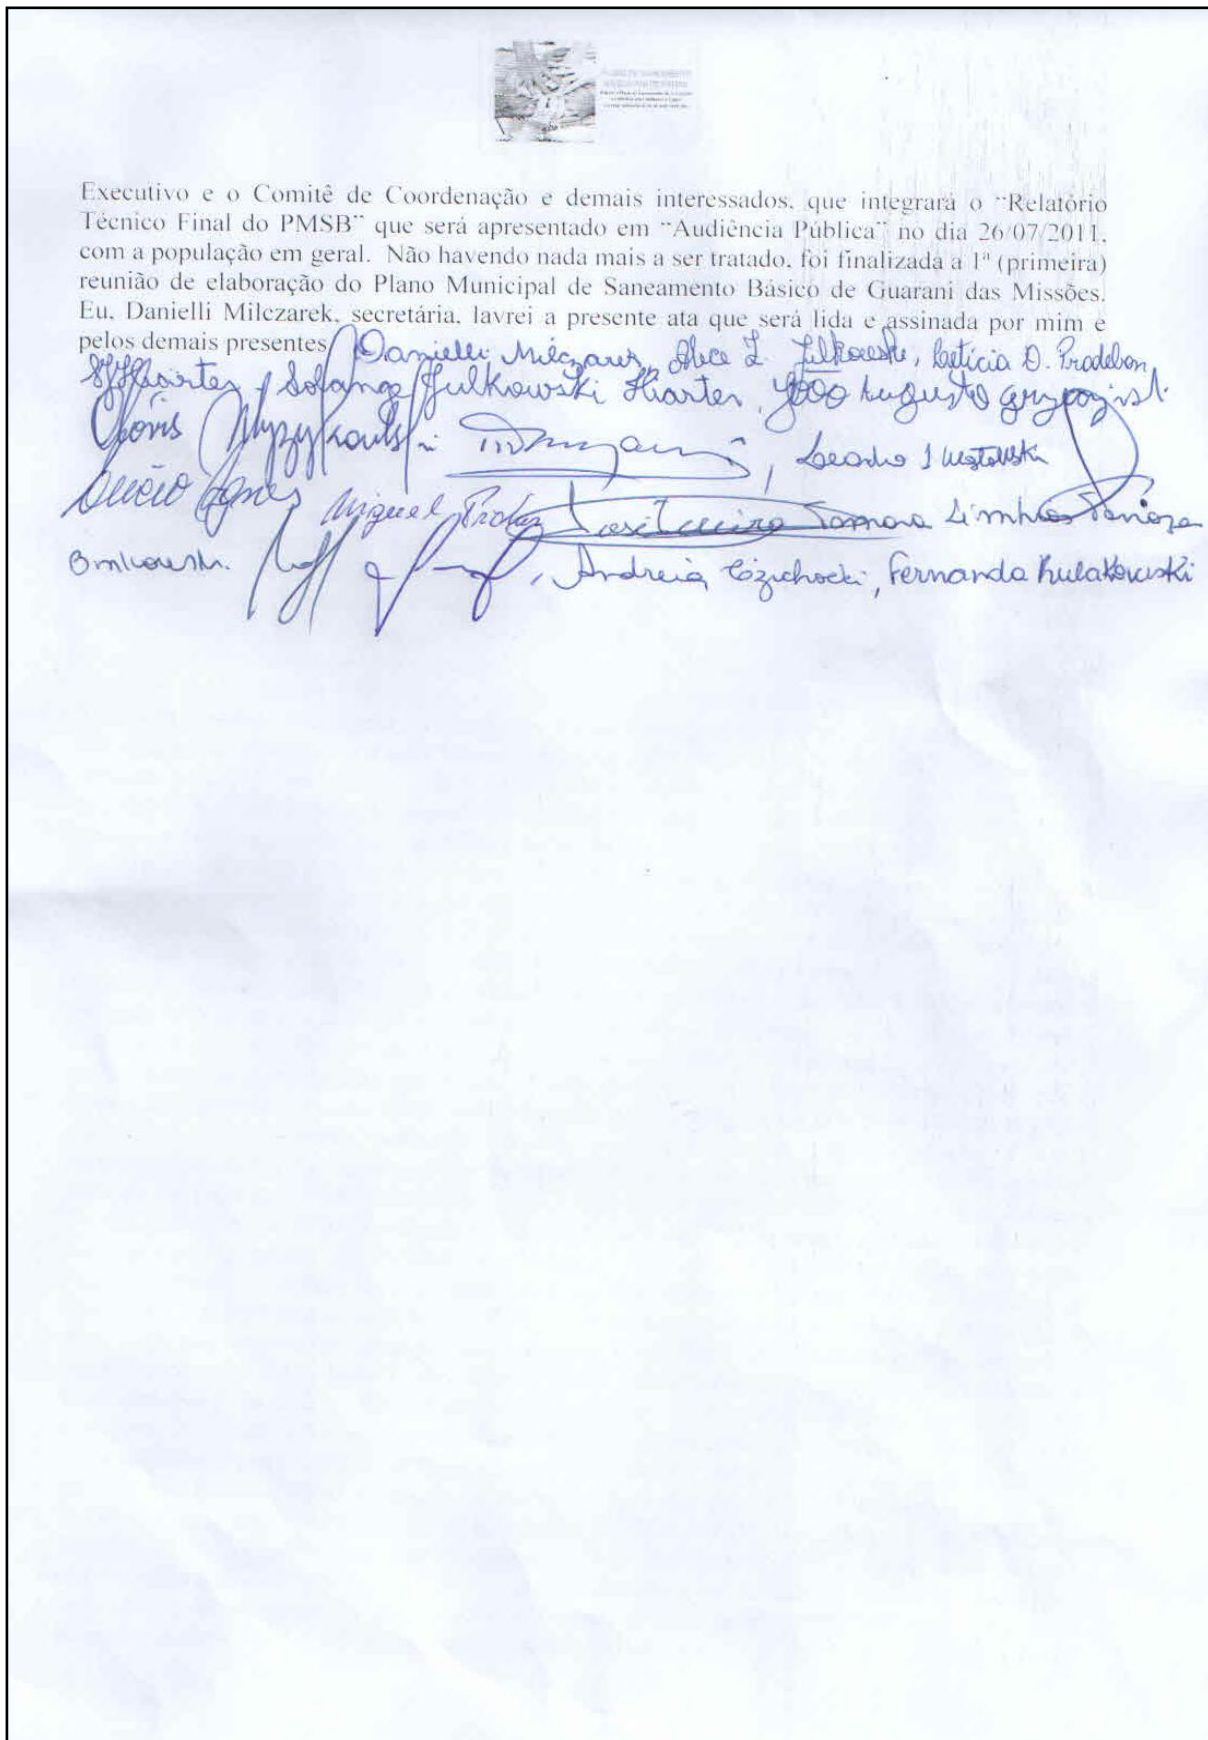 Executivo e o Comitê de Coordenação e demais interessados, que integrará o "Relatório
Técnico Final do PMSB" que será apresentado em "Audiência Pública" no dia 26/07/2011,
com a população em geral. Não havendo nada mais a ser tratado, foi finalizada a 1ª (primeira)
reunião de elaboração do Plano Municipal de Saneamento Básico de Guarani das Missões.
Eu, Danielli Milczarek, secretária, lavrei a presente ata que será lida e assinada por mim e
pelos demais presentes Danielli Milczarek, Alice Z. Julkowski, Letícia D. Pradebon,
Solange Julkowski Hiarter, João Augusto
Clóvis
Miguel
Andreia Czichocki, Fernanda Kulakowski